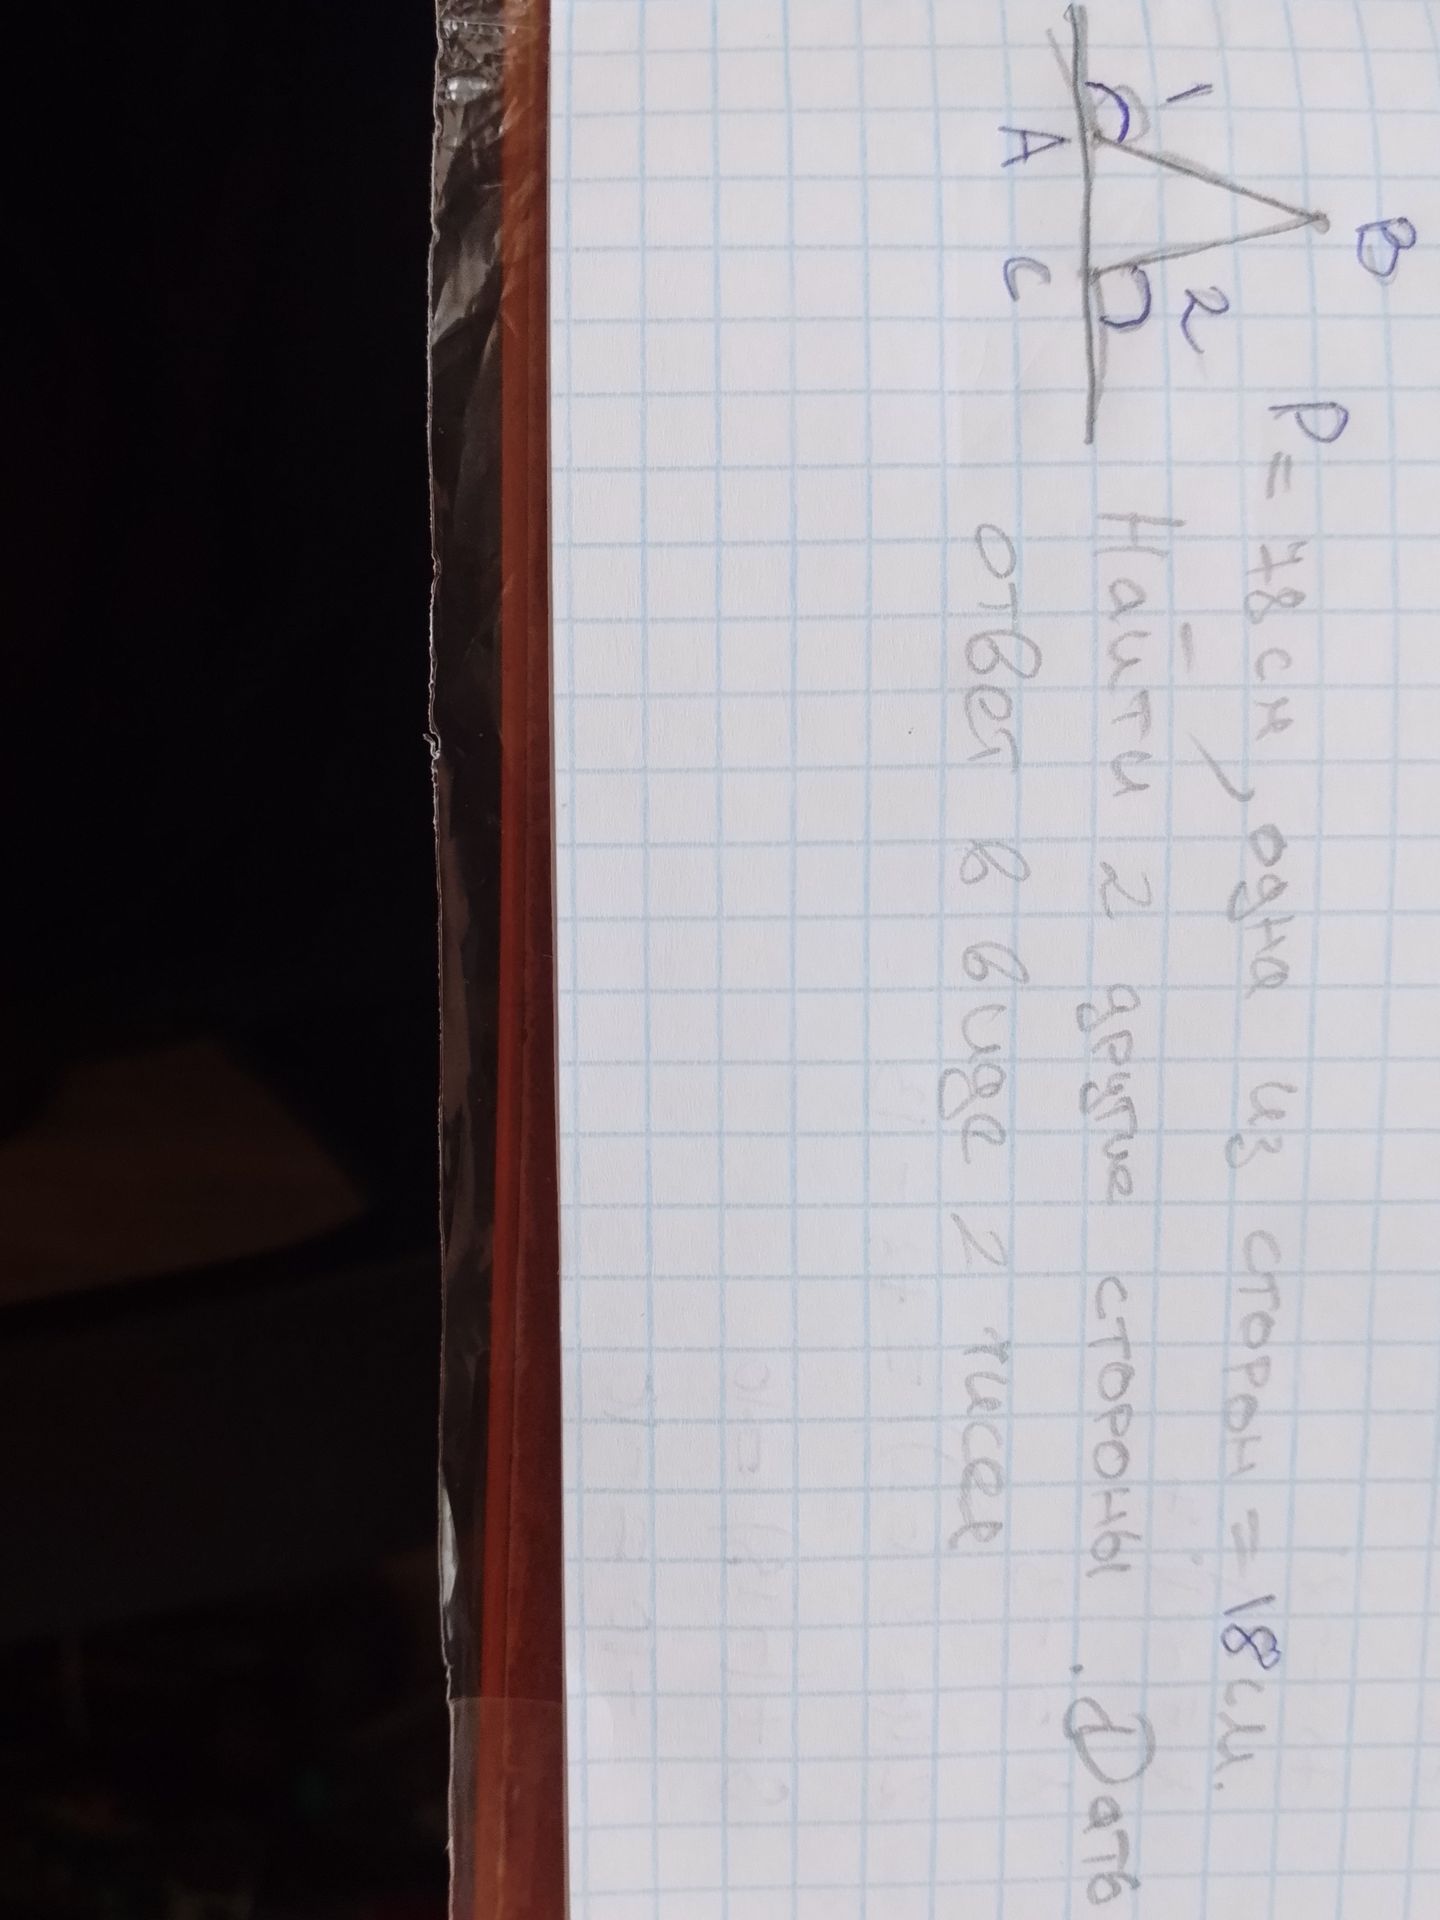 B
1 2
A C
P = 78 см, одна из сторон = 18 см.
Найти 2 другие стороны. Дать
ответ в виде 2 чисел